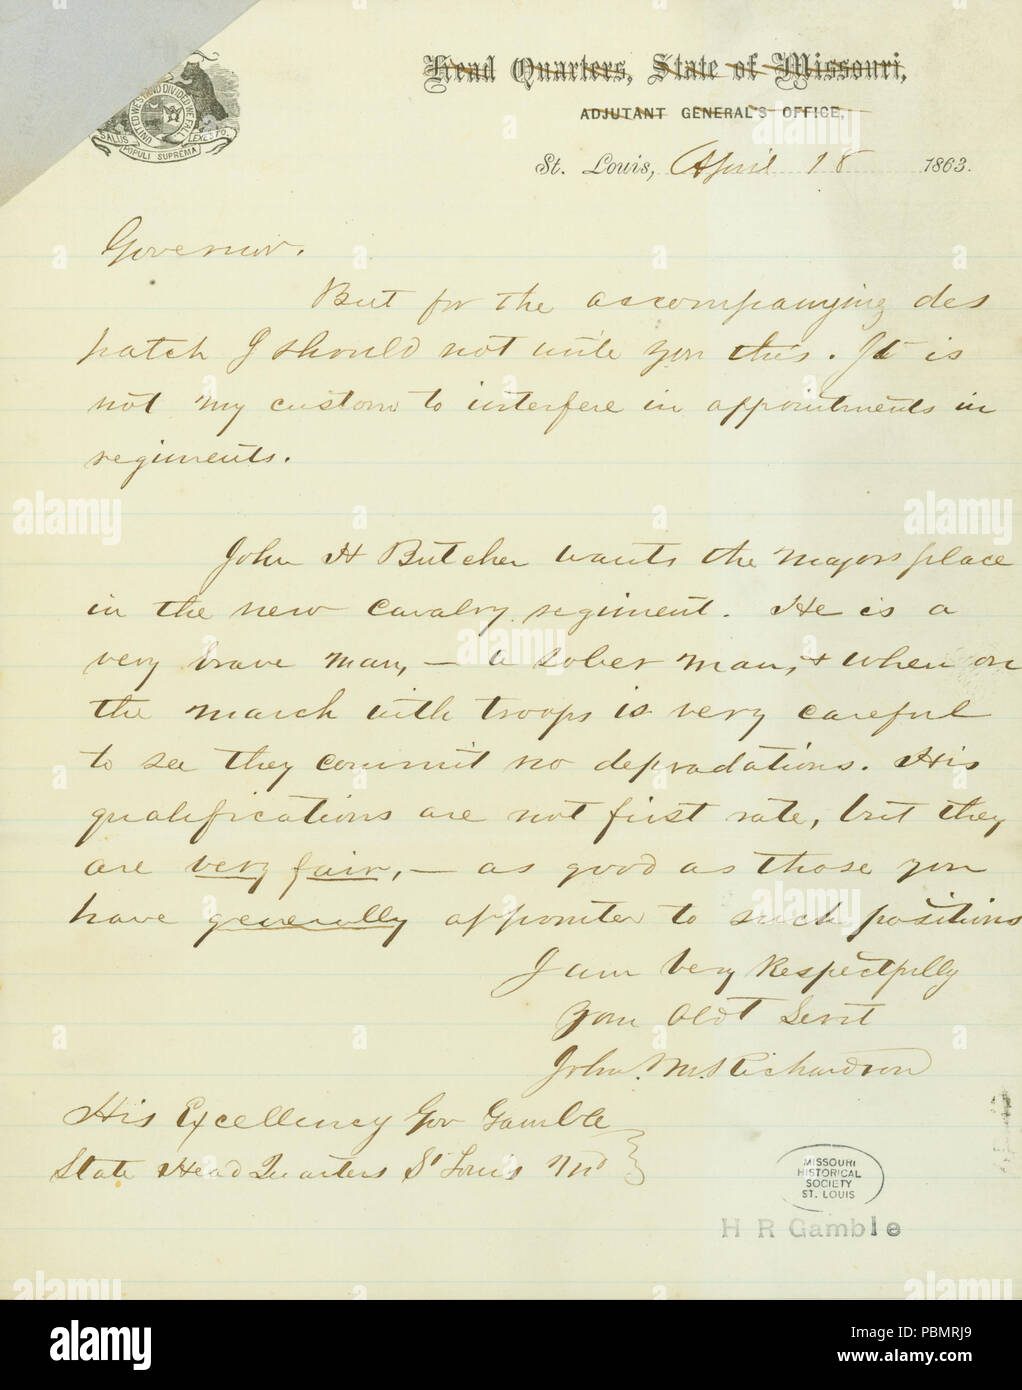 Head Quarters, State of Missouri,
ADJUTANT GENERAL'S OFFICE,
UNITED WE STAND DIVIDED WE FALL
SALUS POPULI SUPREMA LEX ESTO.
St. Louis, April 18 1863.
Governor.
But for the accompanying des
patch I should not write you this. It is
not my custom to interfere in appointments in
regiments.
John H Butcher wants the majors place
in the new cavalry regiment. He is a
very brave man, — a sober man, & when on
the march with troops is very careful
to see they commit no depradations. His
qualifications are not first rate, but they
are very fair, — as good as those you
have generally appointed to such positions
I am Very Respectfully
Your Obdt Servt
John. M. Richardson
His Excellency Gov Gamble
State Head Quarters St Louis Mo
MISSOURI
HISTORICAL
SOCIETY
ST. LOUIS
H R Gamble
alamy
Image ID: PBMRJ9
www.alamy.com